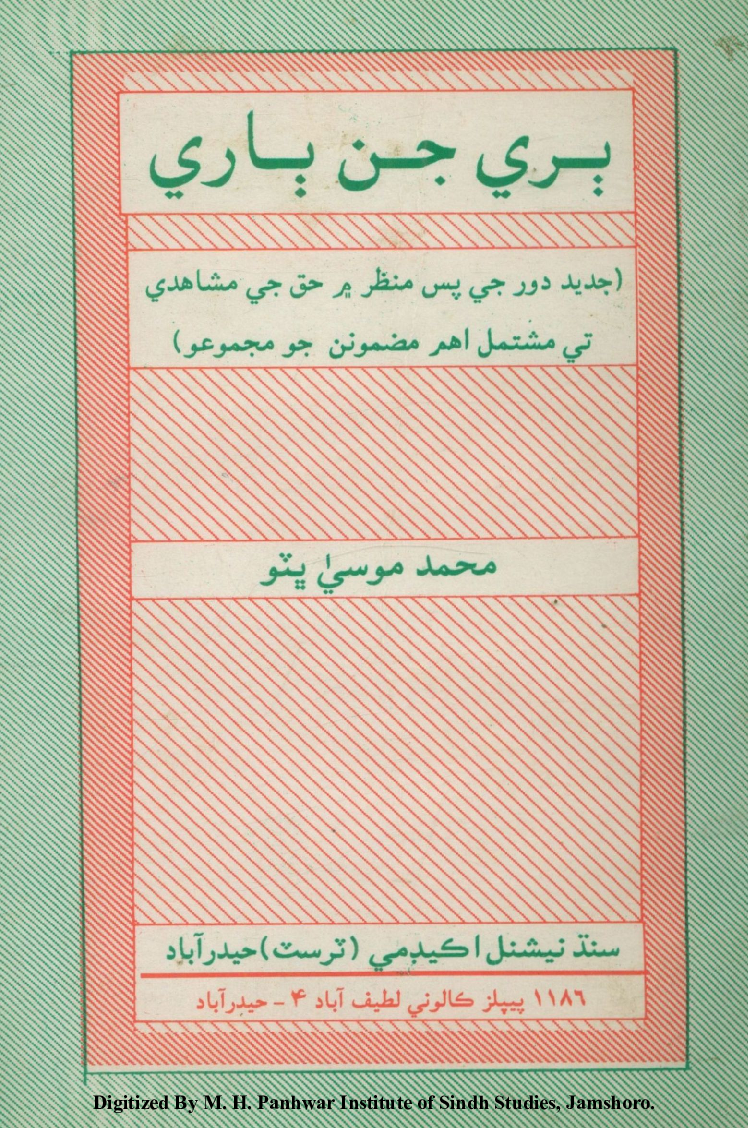 ٻري جن ٻاري
(جديد دور جي پس منظر ۾ حق جي مشاهدي
تي مشتمل اهم مضمونن جو مجموعو)
محمد موسيٰ ڀٽو
سنڌ نيشنل اڪيڊمي (ٽرسٽ) حيدرآباد
١١٨٦ پيپلز ڪالوني لطيف آباد ۴ - حيدرآباد
Digitized By M. H. Panhwar Institute of Sindh Studies, Jamshoro.